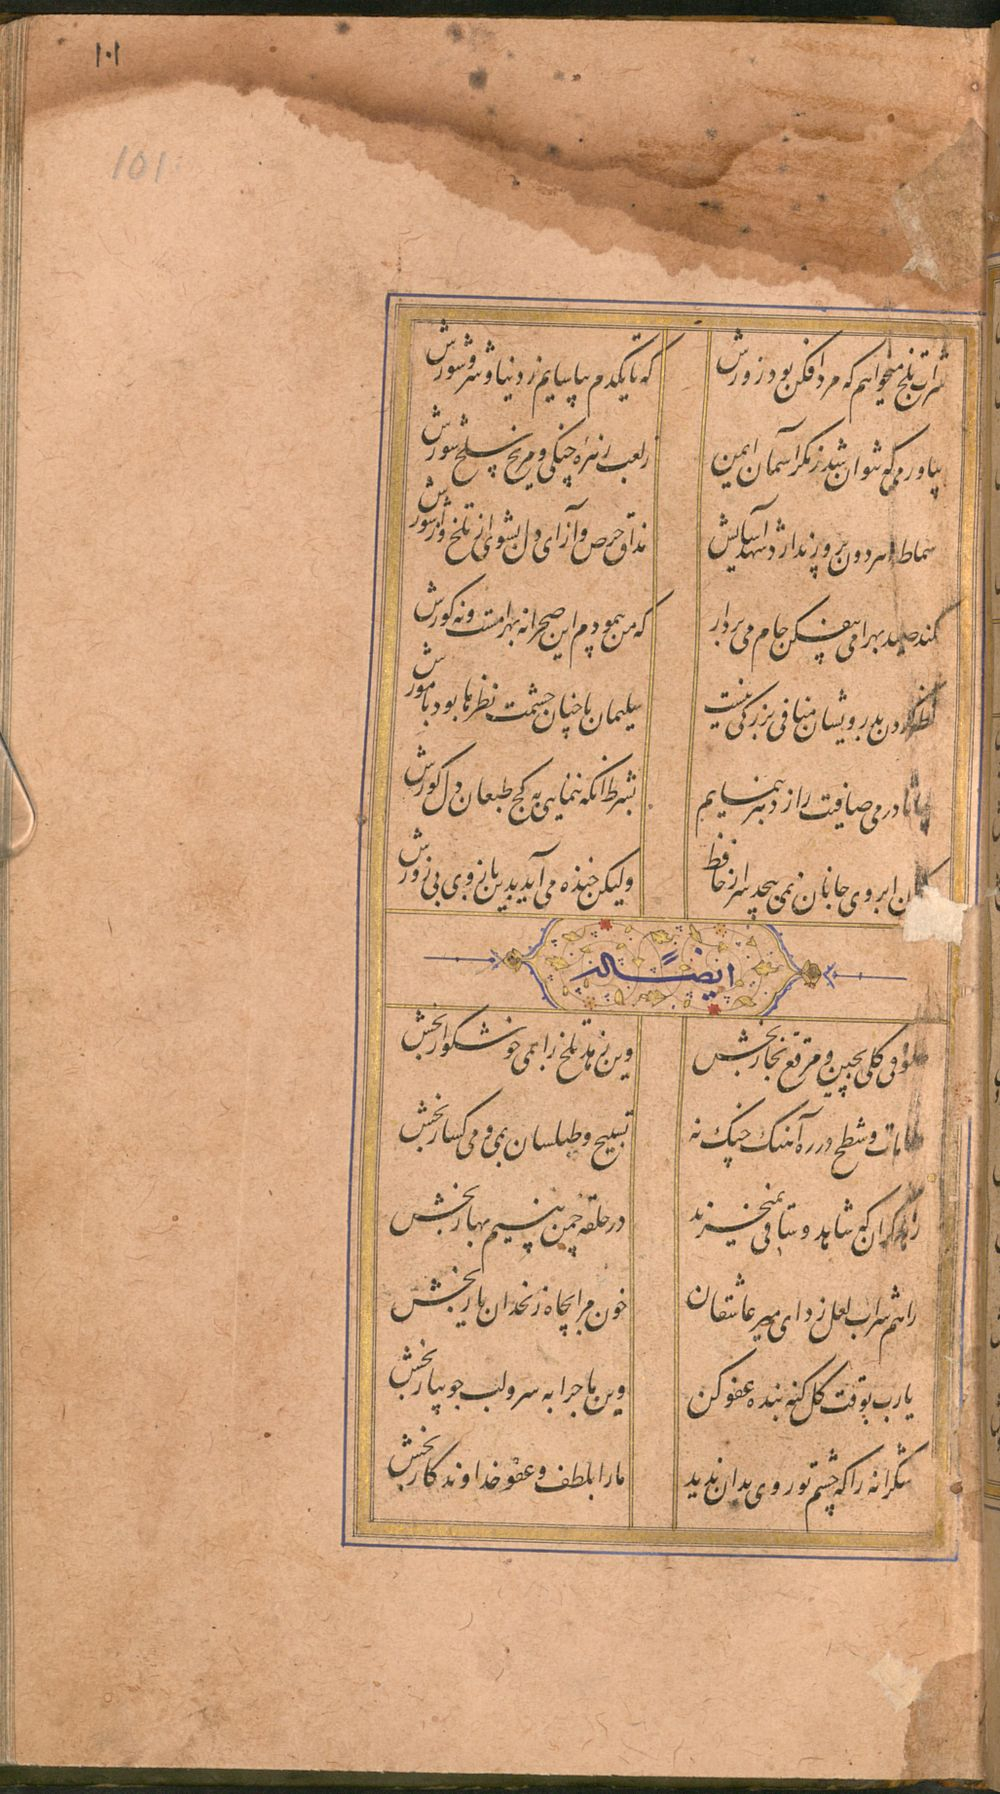 ١٠١
101
شراب تلخ میخواهم که مرد افکن بود زورش که تا یکدم بیاسایم ز دنیا و شر و شورش
بیاور می که نتوان شد ز مکر آسمان ایمن بلعب زهره چنگی و مریخ سلحشورش
سماط دهر دون پرور ندارد شهد آسایش مذاق حرص و آز ای دل بشوی از تلخ و از شورش
کمند صید بهرامی بیفکن جام می بردار که من پیمودم این صحرا نه بهرامست و نه گورش
نظر کردن بدرویشان منافی بزرگی نیست سلیمان با چنان حشمت نظرها بود با مورش
بیا تا در می صافیت راز دهر بنمایم بشرط آنکه ننمایی به کج طبعان دل کورش
کمان ابروی جانان نمی پیچد سر از حافظ ولیکن خنده می آید بدین بازوی بی زورش
ایضاً له
صوفی گلی بچین و مرقع بخار بخش وین زهد تلخ را بمی خوشگوار بخش
طامات و شطح در ره آهنگ چنگ نه تسبیح و طیلسان بمی و می گسار بخش
زهد گران که شاهد و ساقی نمیخرند در حلقه چمن بنسیم بهار بخش
راهم شراب لعل زد ای میر عاشقان خون مرا بچاه زنخدان یار بخش
یارب بوقت گل گنه بنده عفو کن وین ماجرا به سرو لب جویبار بخش
شکرانه را که چشم تو روی بدان ندید ما را بلطف و عفو خداوندگار بخش